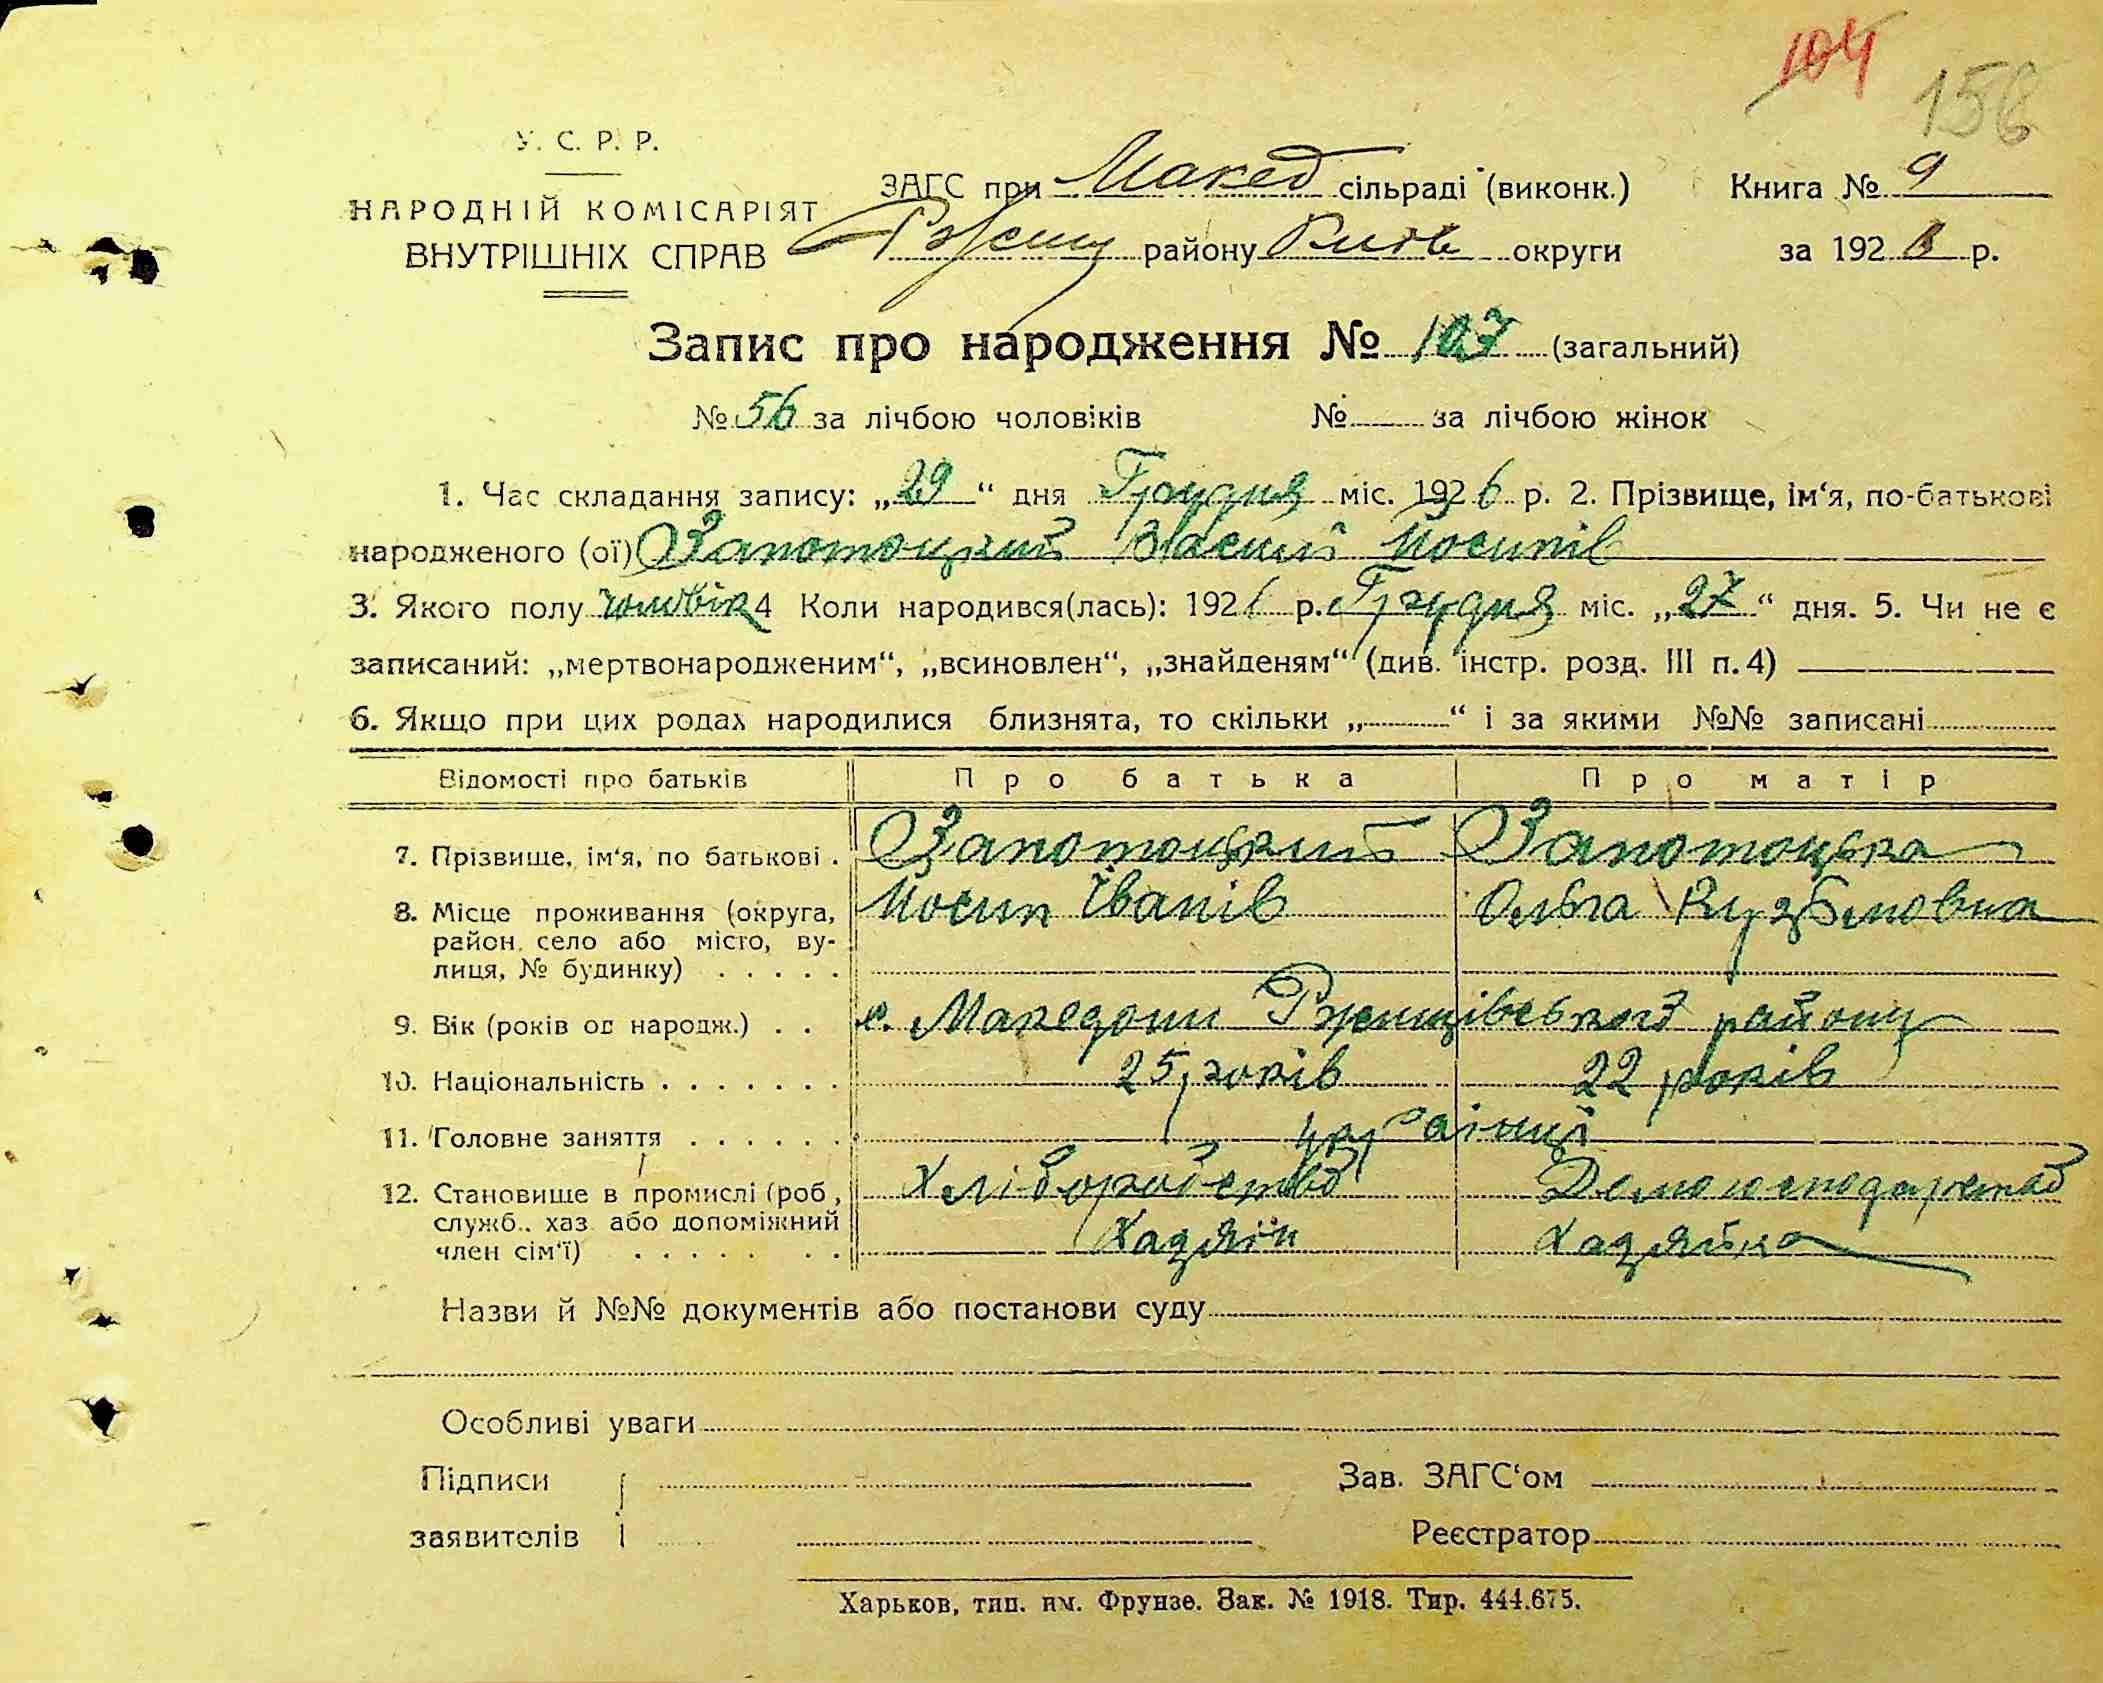 104
156
У. С. Р. Р.
НАРОДНІЙ КОМІСАРІЯТ
ВНУТРІШНІХ СПРАВ
ЗАГС при Макед сільраді (виконк.) Книга № 9
Ржищ району Київ округи за 1926 р.
Запис про народження № 107 (загальний)
№ 56 за лічбою чоловіків № за лічбою жінок
1. Час складання запису: „29“ дня Грудня міс. 1926 р. 2. Прізвище, ім‘я, по-батькові
народженого (ої) Запотоцкий Василь Йосипів
3. Якого полу чоловік 4 Коли народився(лась): 192 р. Грудня міс. „27“ дня. 5. Чи не є
записаний: „мертвонародженим“, „всиновлен“, „знайденям“ (див. інстр. розд. III п. 4)
6. Якщо при цих родах народилися близнята, то скільки „ “ і за якими №№ записані
Відомості про батьків Про батька Про матір
7. Прізвище, ім‘я, по батькові . Запотоцкий Запотоцька
8. Місце проживання (округа, Йосип Іванів Ольга Кузьмовна
район, село або місто, ву-
лиця, № будинку) . . . . .
9. Вік (років од народж.) . . с. Македони Ржищівського району
10. Національність . . . . . . . 25 років 22 років
11. Головне заняття . . . . . . українці
12. Становище в промислі (роб., Хліборобство Домогосподарство
служб., хаз. або допоміжний Хазяїн Хазяйка
член сім‘ї) . . . . . . . .
Назви й №№ документів або постанови суду
Особливі уваги
Підписи Зав. ЗАГС‘ом
заявителів Реєстратор
Харьков, тип. им. Фрунзе. Зак. № 1918. Тир. 444.675.